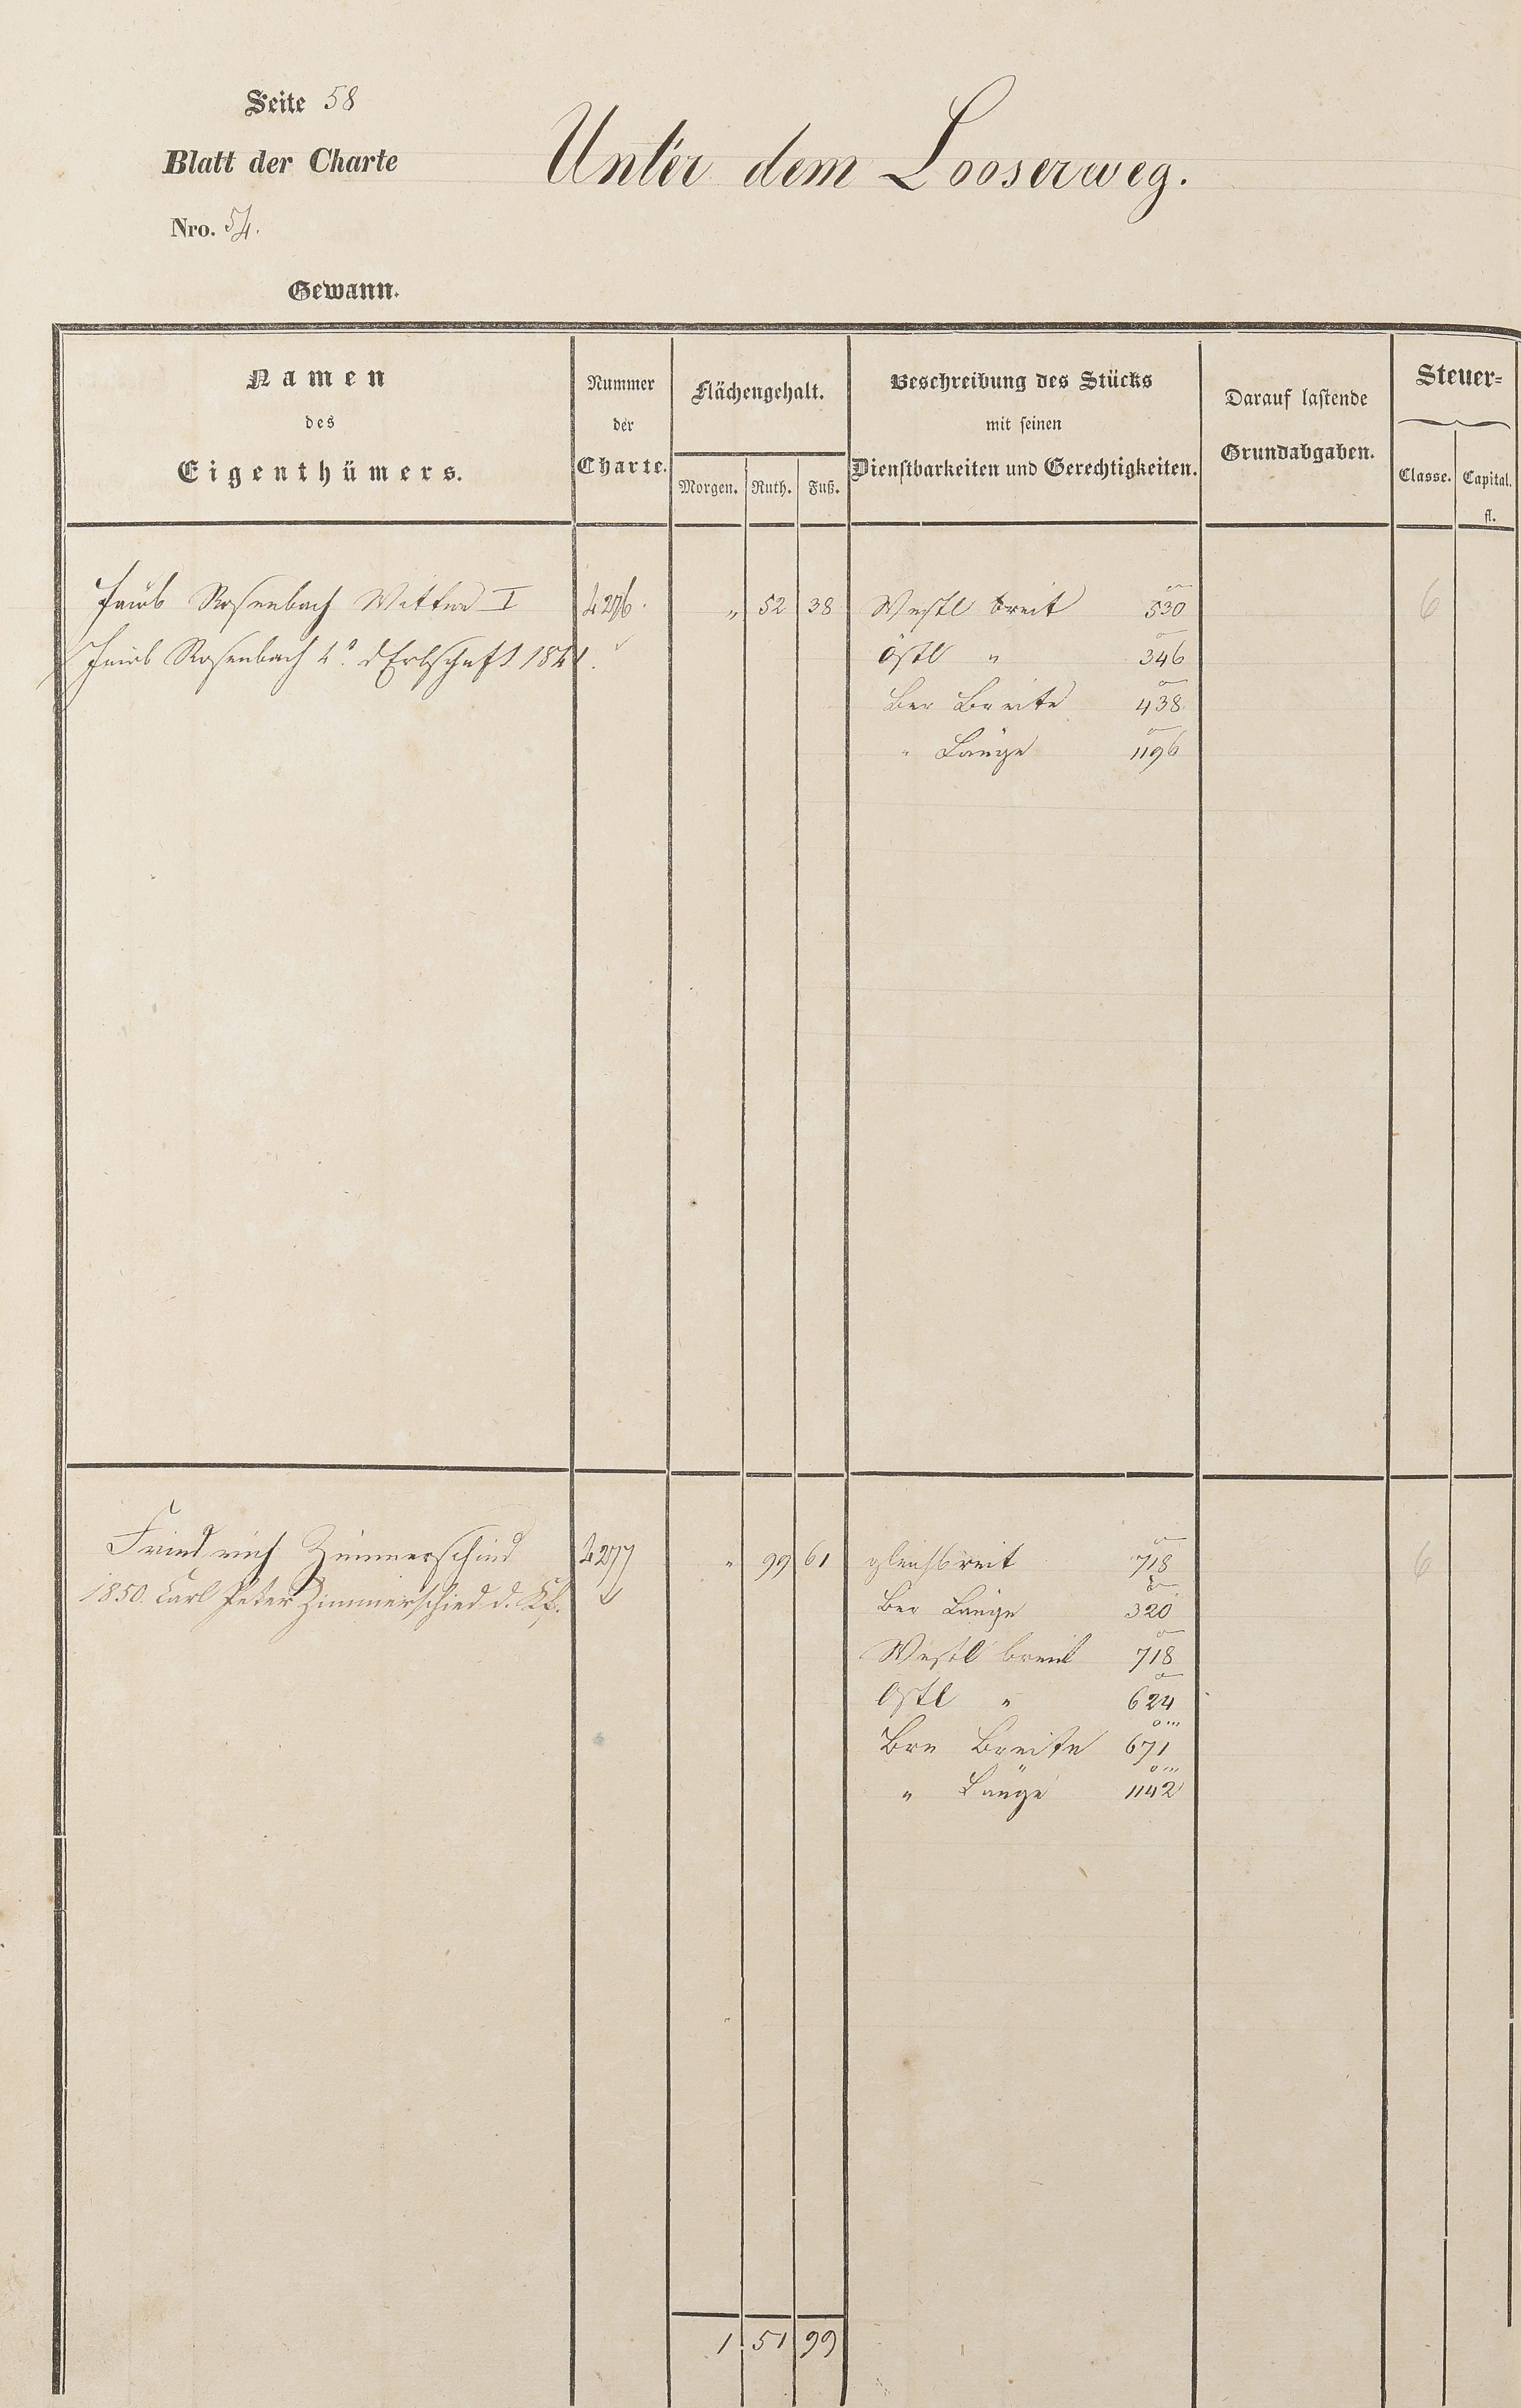 Seite 58
Blatt der Charte
Nro. 54.
Unter dem Looserweg.
Gewann.
Namen
des
Eigenthümers.
Nummer
der
Charte.
Flächengehalt.
Morgen. Ruth. Fuß.
Beschreibung des Stücks
mit seinen
Dienstbarkeiten und Gerechtigkeiten.
Darauf lastende
Grundabgaben.
Steuer-
Classe. Capital.
fl.
Jacob Rosenbach Wittwe I 4276. " 52 38 Westl breit 530 6
Jacob Rosenbach d Erbschaft Östl " 346
Ber Breite 438
" Länge 1196
Friedrich Zimmerschied 4277 " 99 61 gleichbreit 718 6
1850. Carl Peter Zimmerschied d. Kf. Ber Länge 320
Westl breit 718
Östl " 624
Bre Breite 671
" Länge 1142
1 51 99